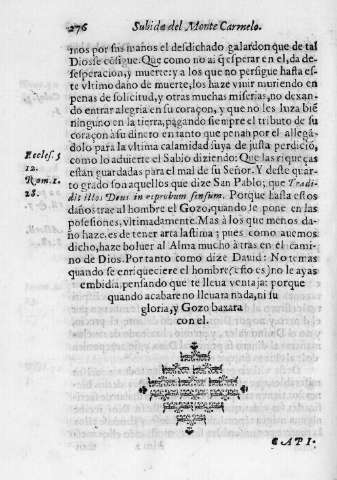 276 Subida del Monte Carmelo.
mos por sus manos el desdichado galardon que de tal
Dios se cōsigue. Que como no ai q̄ esperar en el, da de-
sesperacion, y muerte: y a los que no persigue hasta es-
te vltimo daño de muerte, los haze viuir muriendo en
penas de solicitud, y otras muchas miserias, no dexan-
do entrar alegria en su coraçon, y que no les luza biē
ninguno en la tierra, pagando siempre el tributo de su
coraçon à su dinero en tanto que penan por el, allegā-
dolo para la vltima calamidad suya de justa perdició,
como lo aduierte el Sabio diziendo: Que las riqueças
están guardadas para el mal de su Señor. Y deste quar-
to grado son aquellos que dize San Pablo; que Tradi-
dit illos Deus in reprobum sensum. Porque hasta estos
daños trae al hombre el Gozo, quando le pone en las
posesiones, vltimadamente. Mas à los que menos da-
ño haze, es de tener arta lastima; pues como auemos
dicho, haze boluer al Alma mucho à tras en el cami-
no de Dios. Por tanto como dize Dauid: No temas
quando se enriqueciere el hombre (esto es) no le ayas
embidia, pensando que te lleua ventaja: porque
quando acabare no lleuara nada, ni su
gloria, y Gozo baxara
con el.
Eccles. 5
12.
Rom. 1.
28.
CAPI.